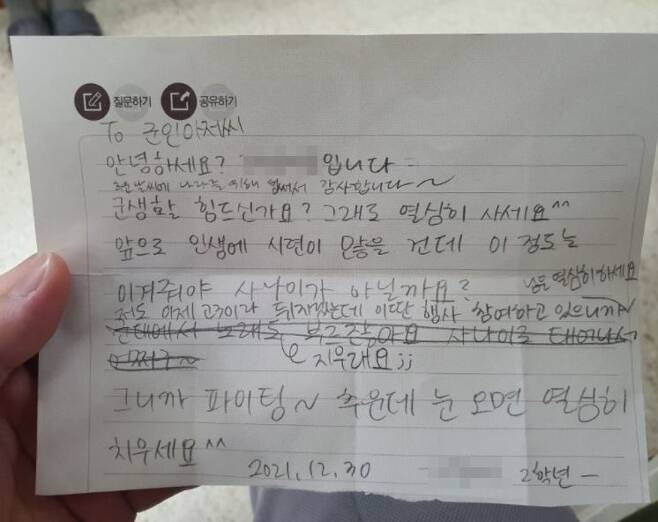 질문하기 공유하기
To 군인아저씨
안녕하세요? 입니다
추운 날씨에 나라를 위해 힘써서 감사합니다~
군생활 힘드신가요? 그래도 열심히 사세요^^
앞으로 인생에 시련이 많을 건데 이 정도는
이겨줘야 사나이가 아닐까요?
남은 열심히하세요
저도 이제 고3이라 뒤지겠는데 이딴 행사 참여하고 있으니까~
군대에서 노래도 부르잖아요 사나이로 태어나서
어쩌구~
지우래요;;
그니까 파이팅~ 추운데 눈 오면 열심히
치우세요^^
2021.12.30 2학년